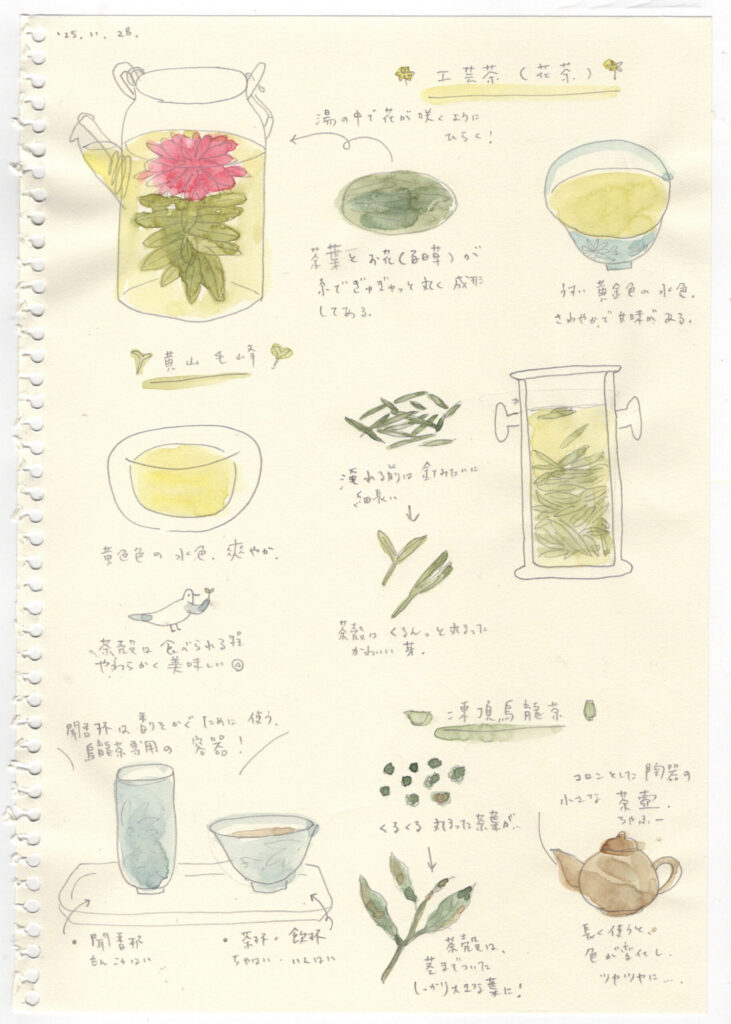 '25. 11. 28.
工芸茶(花茶)
湯の中で花が咲くように
ひらく!
茶葉とお花(百日草)が
糸でぎゅぎゅっと丸く成形
してある。
うすい黄金色の水色。
さわやかで甘味がある。
黄山毛峰
黄色色の水色。爽やか。
茶殻は食べられる程
やわらかく美味しい
淹れる前は針みたいに
細長い
茶殻はくるんっと丸まった
かわいい芽。
凍頂烏龍茶
聞香杯は香りをかぐために使う、
烏龍茶専用の容器!
・聞香杯
もんこうはい
・茶杯・飲杯
ちゃはい・いんはい
くるくる丸まった茶葉が、
茶殻は、
茎までついた
しっかり大きな葉に!
コロンとした陶器の
小さな茶壺。
ちゃふー
長く使うと、
色が変化し、
ツヤツヤに…。